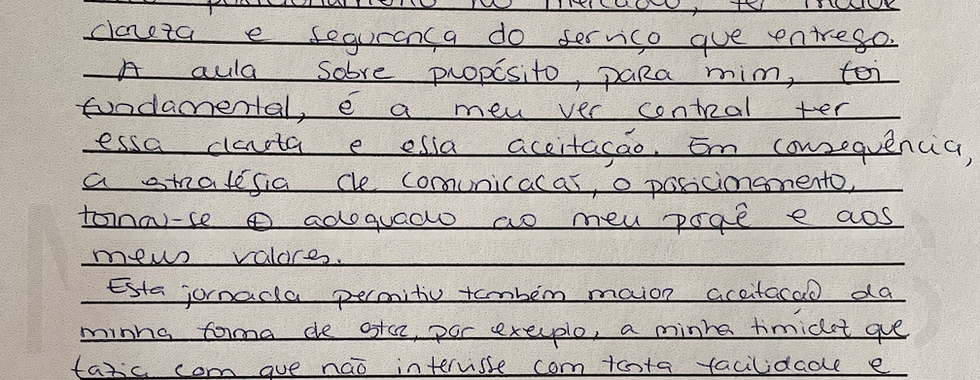 posicionamento no mercado, ter maior
clareza e segurança do serviço que entrego.
A aula sobre propósito, para mim, foi
fundamental, é a meu ver central ter
essa clareza e essa aceitação. Em consequência,
a estratégia de comunicação, o posicionamento,
torna-se adequado ao meu porquê e aos
meus valores.
Esta jornada permitiu também maior aceitação da
minha forma de estar, por exemplo, a minha timidez que
fazia com que não intervisse com tanta facilidade e